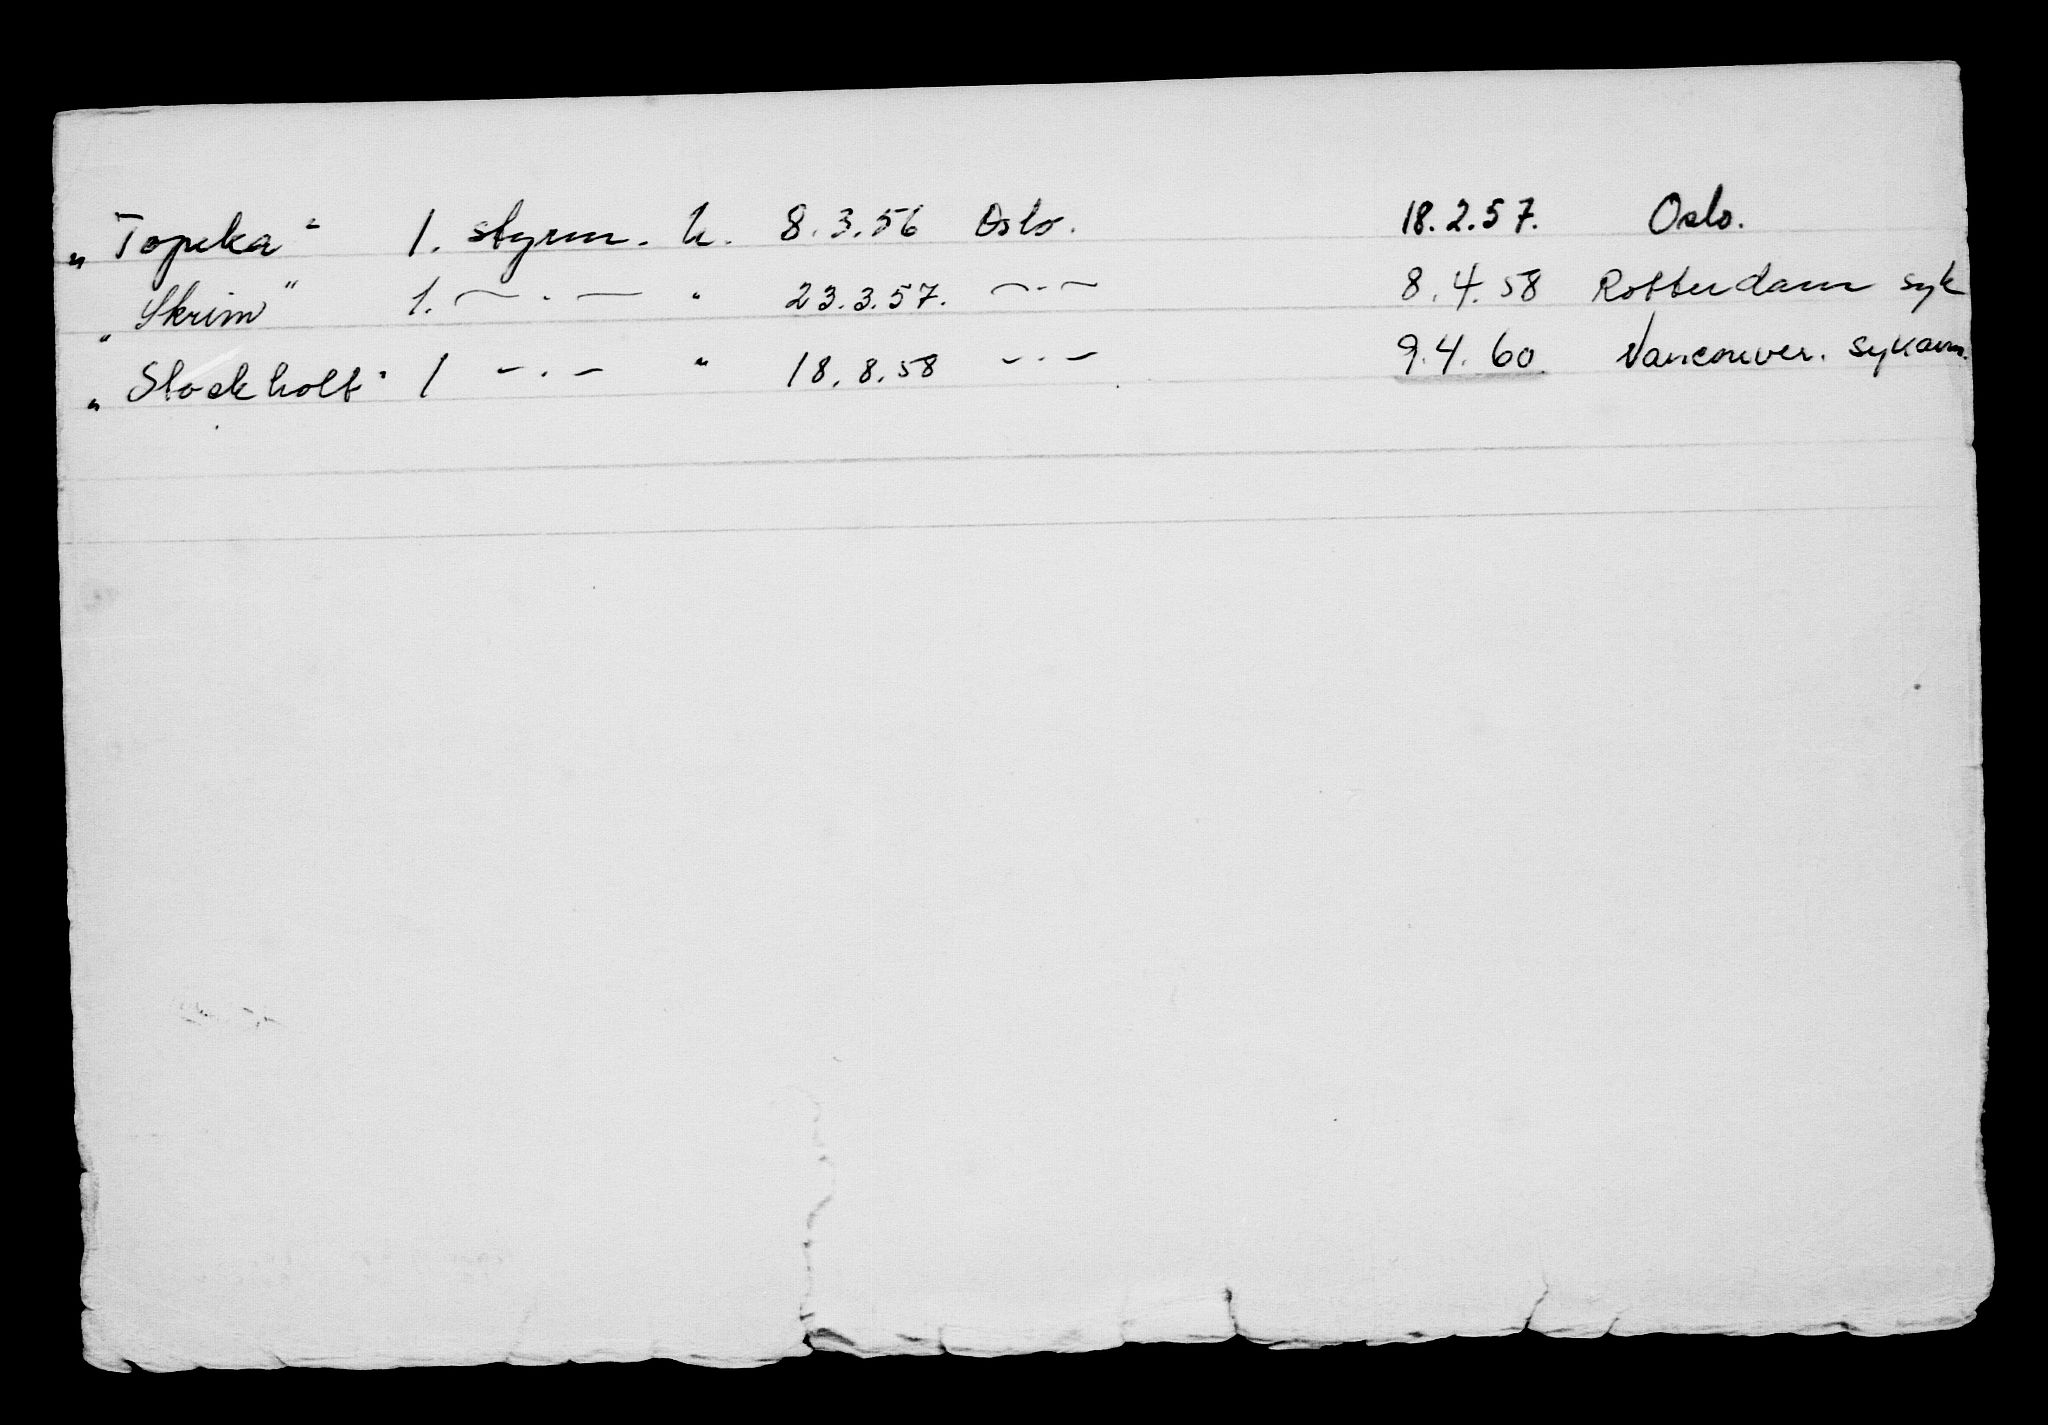 „Topeka" 1. styrm. h. 8.3.56 Oslo. 18.2.57. Oslo.
„Skrim" 1. — . — " 23.3.57. — . — 8.4.58 Rotterdam syk
„Stockholt" 1 — . — " 18.8.58 — . — 9.4.60 Vancouver.